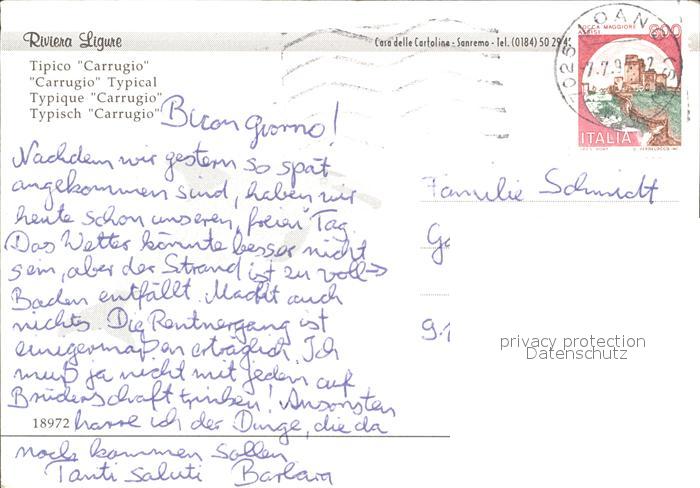 Riviera Ligure
Casa delle Cartoline - Sanremo - Tel. (0184) 50 29 4
Tipico "Carrugio"
"Carrugio" Typical
Typique "Carrugio"
Typisch "Carrugio"
ROCCA MAGGIORE
ASSISI
800
LOANO
7.7.9
ITALIA
Buon giorno!
Nachdem wir gestern so spät
angekommen sind, haben wir
heute schon unseren "freien" Tag.
Das Wetter könnte besser nicht
sein, aber der Strand ist zu voll →
Baden entfällt. Macht auch
nichts. Die Rentnergang ist
einigermaßen erträglich. Ich
muß ja nicht mit jedem auf
Brüderschaft trinken! Ansonsten
18972 harre ich der Dinge, die da
noch kommen sollen
Tanti saluti Barbara
Familie Schmidt
Ga
91
privacy protection
Datenschutz